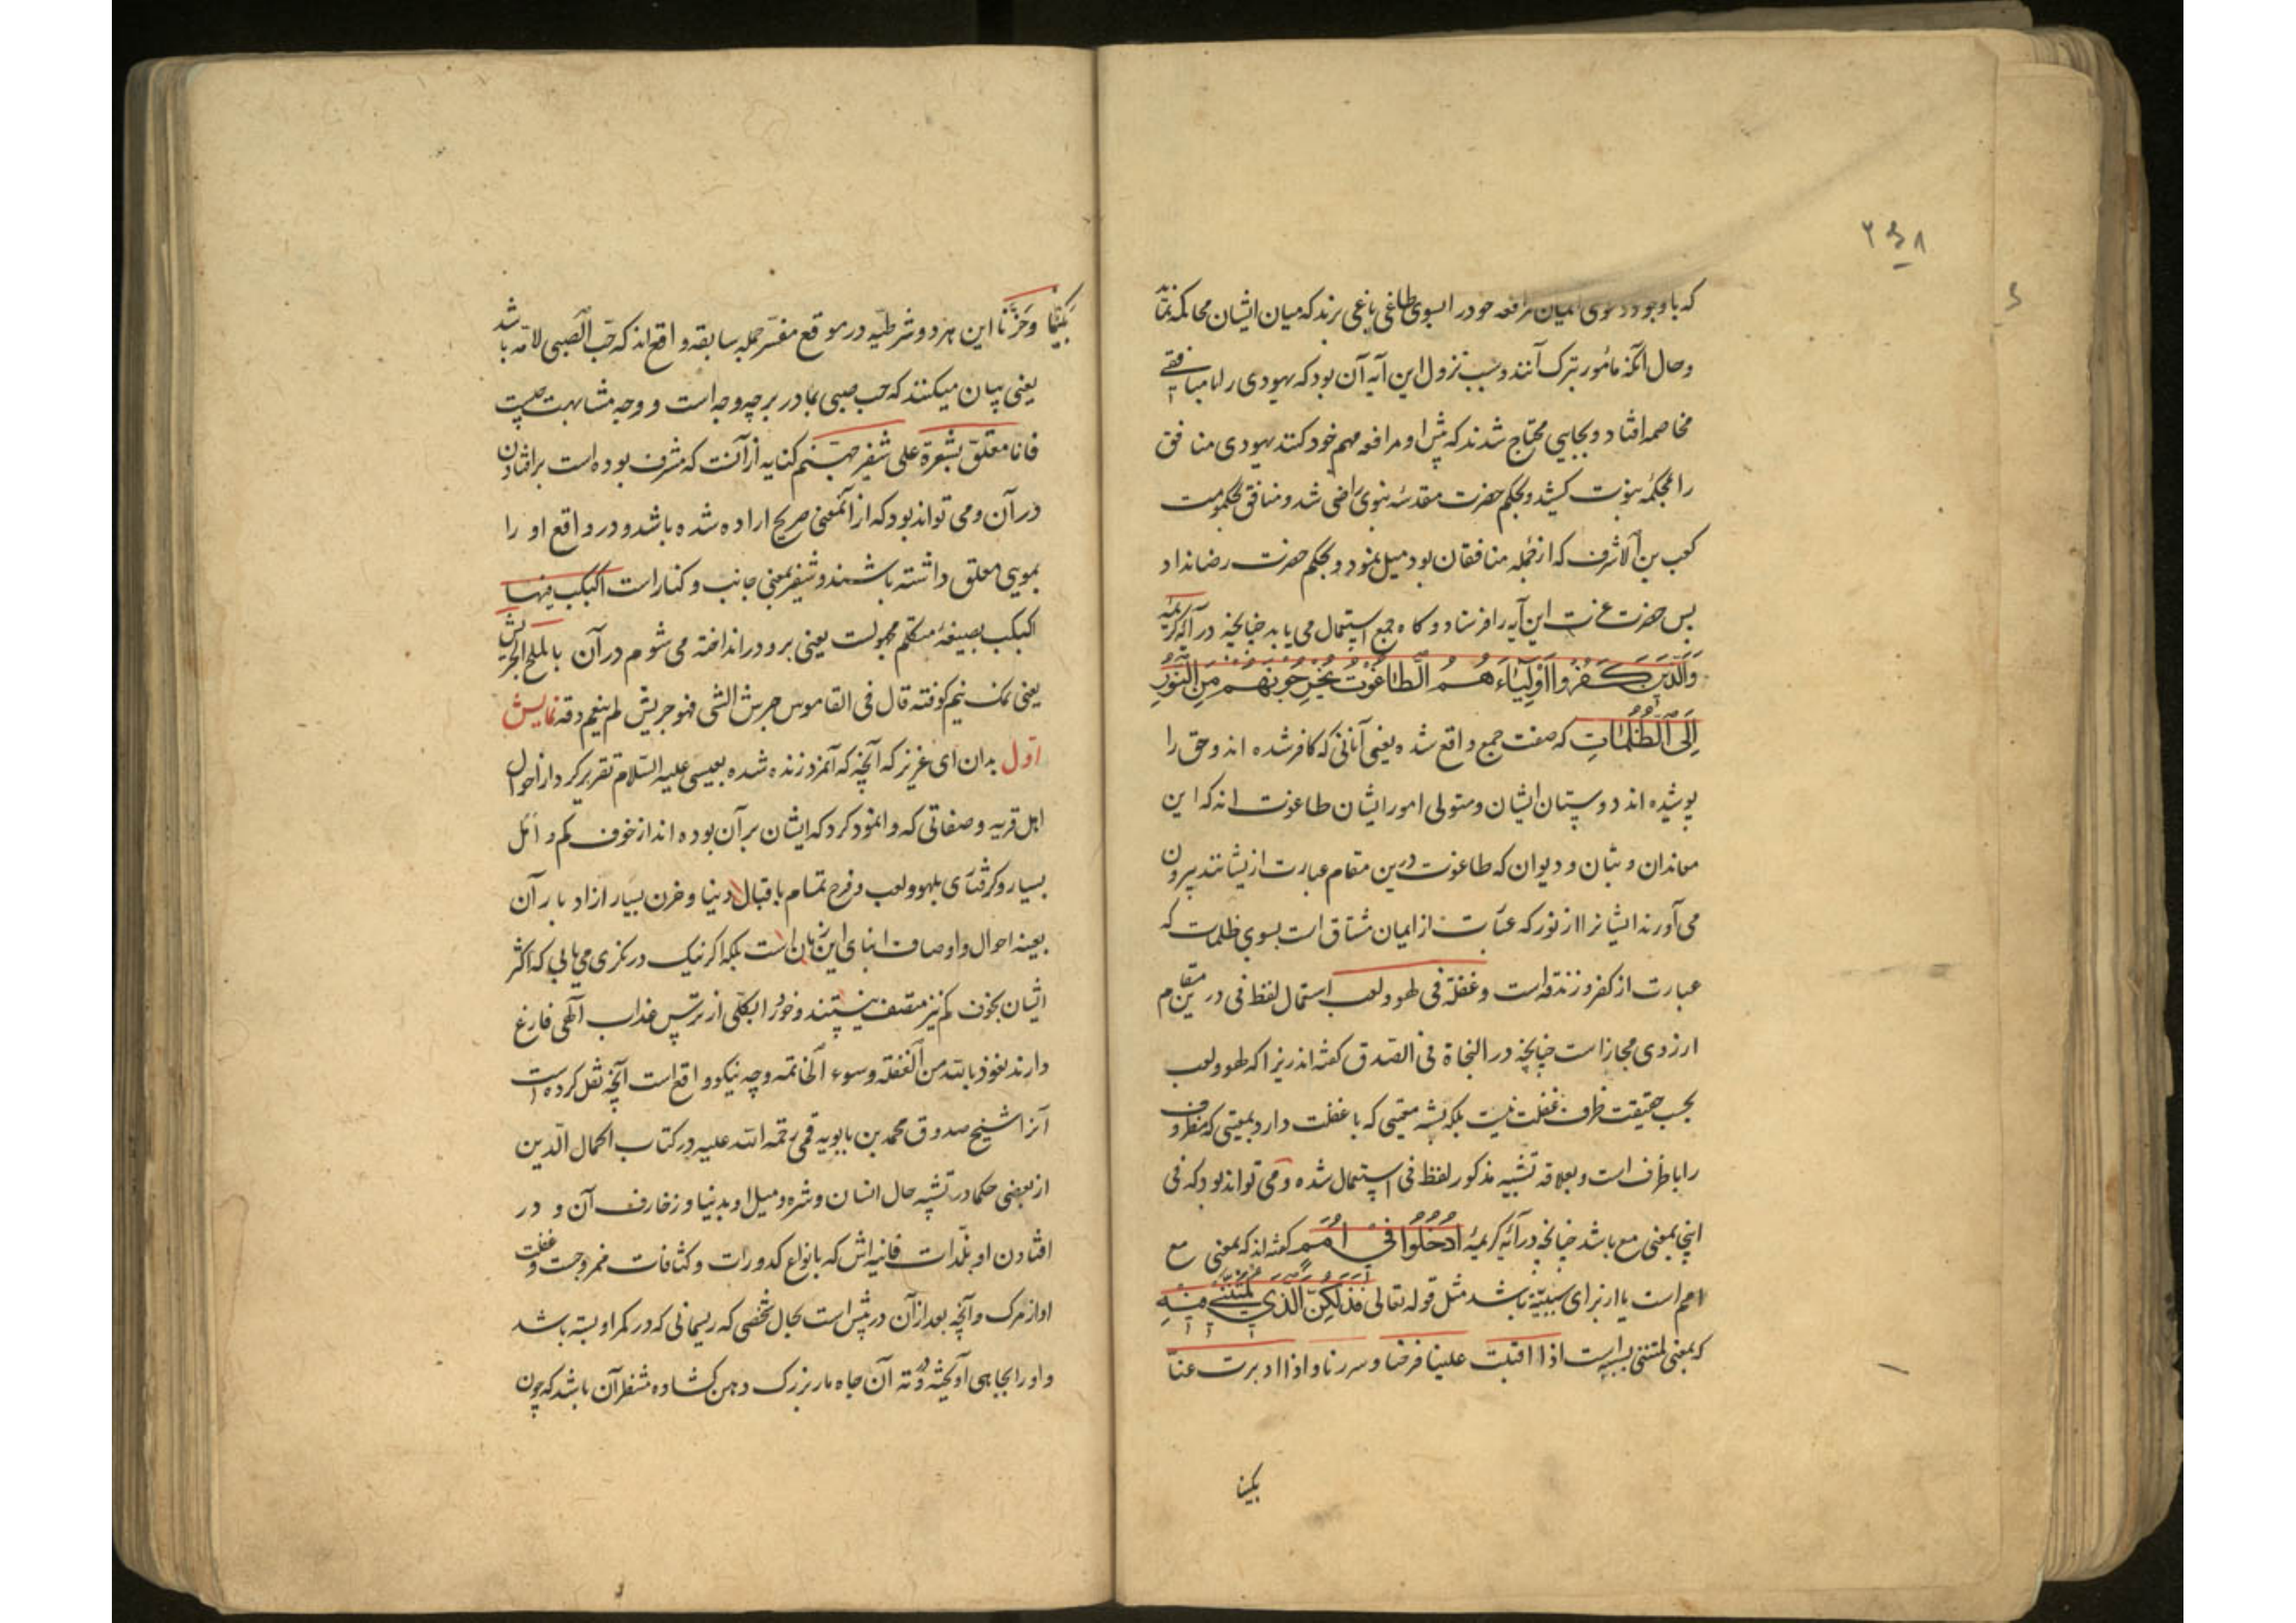 ۲۵۸
که با وجود دعوی ایمان مرافعه خود را بسوی طاغی باغی برند که میان ایشان محاکمه نماید
وحال آنکه مأمور بترک آنند وسبب نزول این آیه آن بود که یهودی را با منافقی
مخاصمه افتاد و بجایی محتاج شدند که پیش او مرافعه مهم خود کنند یهودی منافق
را بمحکمهٔ نبوت کشید و بحکم حضرت مقدسهٔ نبوی راضی شد و منافق بحکومت
کعب بن الاشرف که از جمله منافقان بود میل نمود و بحکم حضرت رضا نداد
پس حضرت عزت این آیه را فرستاد و کاه جمع استعمال می یابد چنانچه در آیه کریمهٔ
وَالَّذِینَ کَفَرُوا اَوْلِیَاءُهُمُ الطَّاغُوتُ یُخْرِجُونَهُمْ مِنَ النُّورِ
اِلَی الظُّلُمَاتِ که صفت جمع واقع شده یعنی آنانی که کافر شده اند و حق را
پوشیده اند دوستان ایشان و متولی امور ایشان طاغوت اند که این
معاندان و بتان و دیوان که طاغوت درین مقام عبارت ازیشانند بیرون
می آورند ایشانرا از نور که عبارت از ایمان مشتاق است بسوی ظلمات که
عبارت از کفر و زندقه است وغفلة فی لهو ولعب استعمال لفظ فی درین مقام
از روی مجاز است چنانچه در النجاة فی الصدق کفته اند زیرا که لهو ولعب
بحسب حقیقت ظرف غفلت نیست بلکه بشبه معیتی که با غفلت دارد بمعیتی که مظروف
را با ظرف است وبعلاقه تشبیه مذکور لفظ فی استعمال شده و می تواند بود که فی
اینجا بمعنی مع باشد چنانچه در آیه کریمهٔ اُدْخُلُوا فِی اُمَمٍ کفته اند که بمعنی مع
امم است یا از برای سببیة باشد مثل قوله تعالی فَذٰلِکُنَّ الَّذِی لُمْتُنَّنِی فِیهِ
که بمعنی لمتننی بسببه است اذا اقبلت علینا فرحنا وسررنا واذا ادبرت عنّا
بکینا
بَکَیْنَا وَحَزَنَّا این هر دو شرطیّه در موقع مفسّر جمله سابقه واقع اند که حبّ الصبی لامّه باشد
یعنی بیان میکنند که حب صبی بمادر بر چه وجه است و وجه مشابهت چیست
فانا معلّق بشعرة علی شفیر جهنّم کنایه از آنست که مشرف بوده است بر افتادن
در آن ومی تواند بود که از آنمعنی صریح اراده شده باشد و در واقع او را
بمویی معلق داشته باشند و شفیر بمعنی جانب و کنار است اکبکب فیها
اکبکب بصیغهٔ متکلم مجهولست یعنی برو در انداخته می شوم در آن بالملح الجریش
یعنی نمک نیم کوفته قال فی القاموس جرش الشی فهو جریش لم ینعم دقه نمایش
اوّل بدان ای عزیز که آنچه که آنمرد زنده شده بعیسی علیه السّلام تقریر کرد از احوال
اهل قریه و صفاتی که وانمود کرد که ایشان بر آن بوده اند از خوف کم و امل
بسیار و کرفتاری بلهو ولعب و فرح تمام باقبال دنیا و حزن بسیار از ادبار آن
بعینه احوال و اوصاف ابنای این زمان است بلکه اکر نیک درنکری می یابی که اکثر
ایشان بخوف کم نیز متصف نیستند و خود را بکلّی از ترس عذاب الهی فارغ
دارند نعوذ بالله من الغفلة وسوء الخاتمة وچه نیکو و واقع است آنچه نقل کرده است
آنرا شیخ صدوق محمد بن بابویه قمی رحمة الله علیه در کتاب اکمال الدّین
از بعضی حکما در تشبیه حال انسان و شره و میل او بدنیا و زخارف آن و در
افتادن او بلذّات فانیه اش که بانواع کدورات و کثافات ممزوجست و غفلت
او از مرک وآنچه بعد از آن در پیش است بحال شخصی که ریسمانی که در کمر او بسته باشد
و او را بچاهی آویخته و در ته آن چاه مار بزرک دهن کشاده منتظر آن باشد که چون